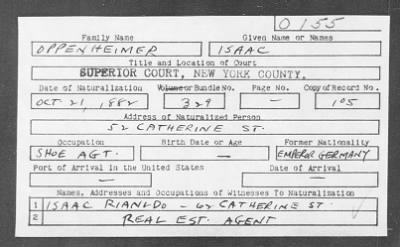 O 155
Family Name Given Name or Names
OPPENHEIMER ISAAC
Title and Location of Court
SUPERIOR COURT, NEW YORK COUNTY.
Date of Naturalization Volume or Bundle No. Page No. Copy of Record No.
OCT 21, 1882 329 — 105
Address of Naturalized Person
52 CATHERINE ST.
Occupation Birth Date or Age Former Nationality
SHOE AGT. — EMPEROR GERMANY
Port of Arrival in the United States Date of Arrival
— —
Names, Addresses and Occupations of Witnesses To Naturalization
1 ISAAC RIANLDO - 62 CATHERINE ST.
2 REAL EST. AGENT